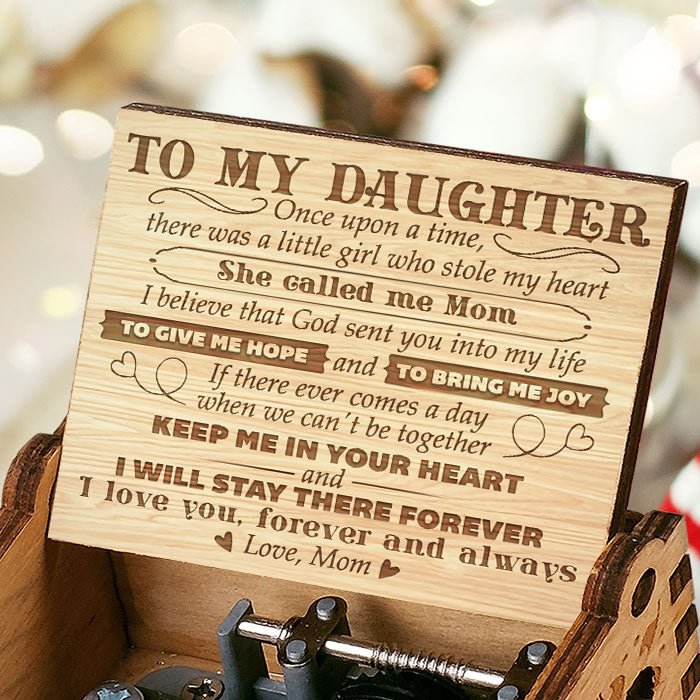 TO MY DAUGHTER
Once upon a time,
there was a little girl who stole my heart
She called me Mom
I believe that God sent you into my life
TO GIVE ME HOPE and TO BRING ME JOY
If there ever comes a day
when we can't be together
KEEP ME IN YOUR HEART
and
I WILL STAY THERE FOREVER
I love you, forever and always
Love, Mom